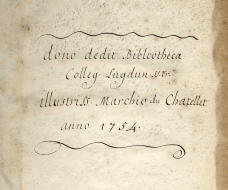 dono dedit Bibliotheca
Colleg. Lugdun.
illustriss Marchio du Chatellet
anno 1754.